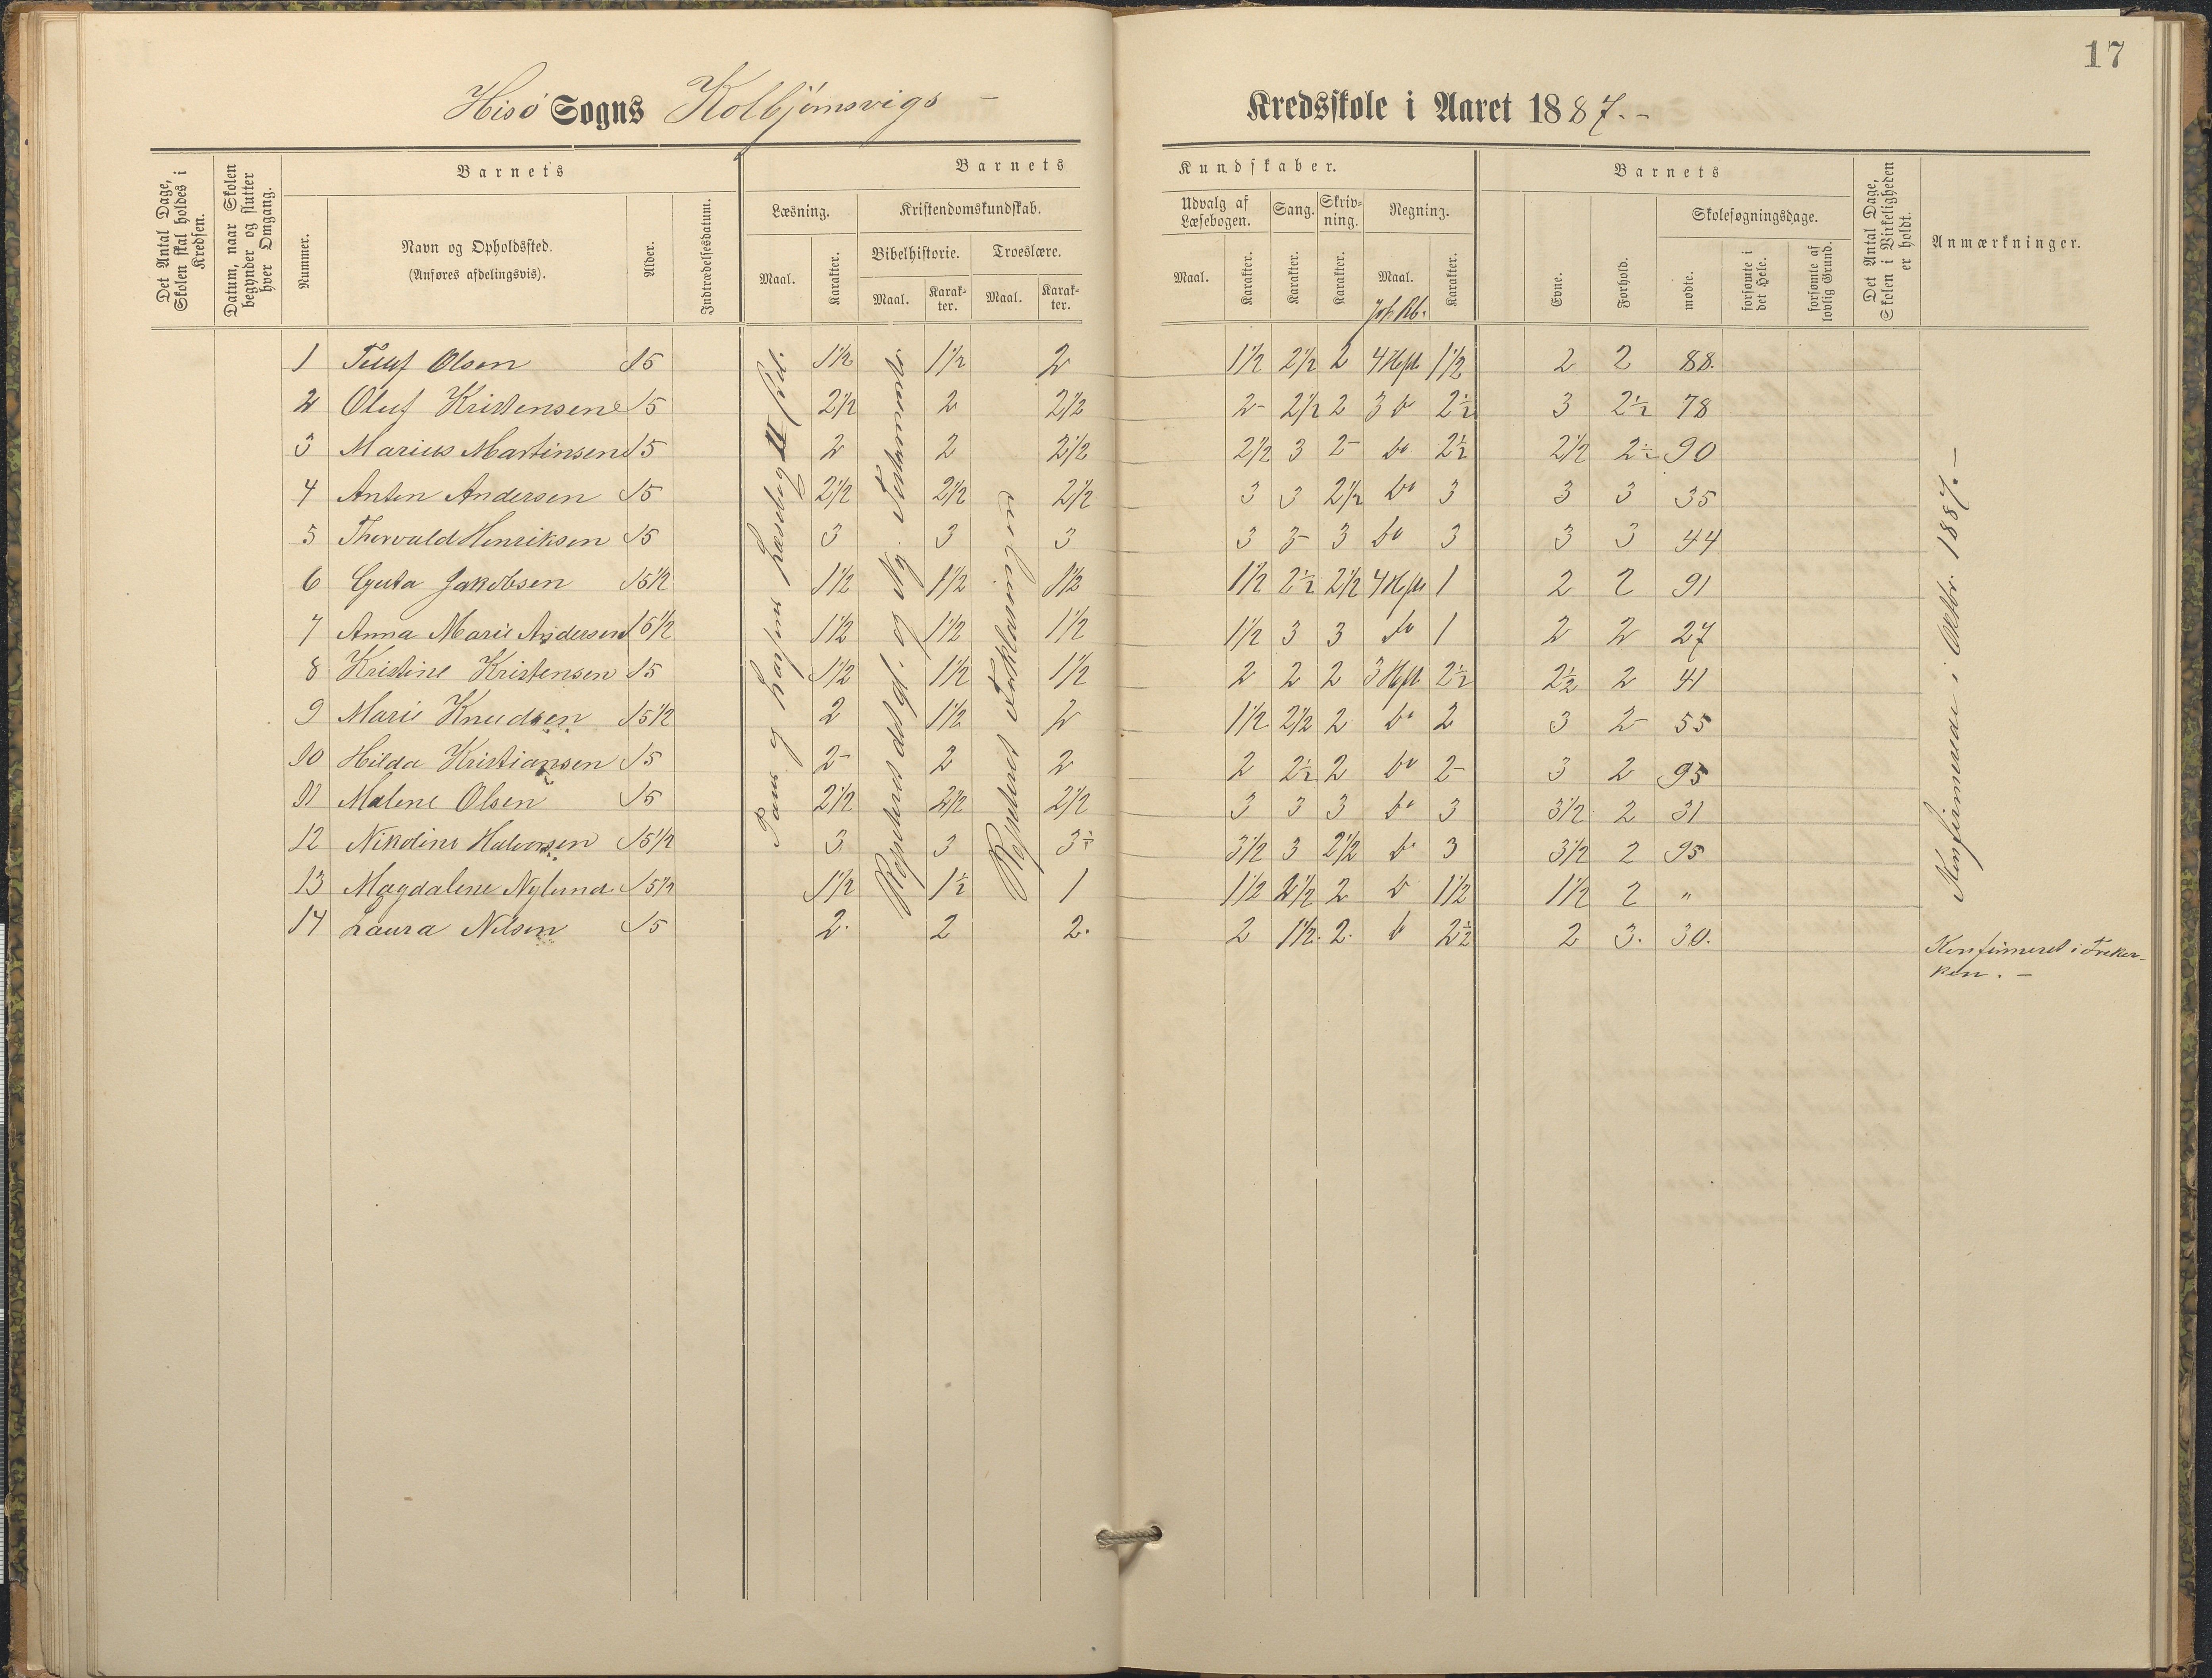 17
Hisö Sogns Kolbjörnsvigs - Kredsskole i Aaret 1887. -
Det Antal Dage, Skolen skal holdes i Kredsen.
Datum, naar Skolen begynder og slutter hver Omgang.
Barnets
Nummer.
Navn og Opholdssted.
(Anføres afdelingsvis).
Alder.
Indtrædelsesdatum.
Barnets Kundskaber.
Læsning.
Maal.
Karakter.
Kristendomskundskab.
Bibelhistorie.
Maal.
Karakter.
Troeslære.
Maal.
Karakter.
Udvalg af Læsebogen.
Maal.
Karakter.
Sang.
Karakter.
Skrivning.
Karakter.
Regning.
Maal.
Karakter.
Barnets
Evne.
Forhold.
Skolesøgningsdage.
mødte.
forsømte i det Hele.
forsømte af lovlig Grund.
Det Antal Dage, Skolen i Virkeligheden er holdt.
Anmærkninger.
1 Olsen 15 1½ 1½ 2 1½ 2½ 2 4 Heft. 1½ 2 2 88.
2 Oluf Kristensen 15 2½ 2 2½ 2- 2½ 2 3 do 2½ 3 2½ 78
3 Marius Martinsen 15 2 2 2½ 2½ 3 2- do 2½ 2½ 2½ 90
4 Anton Andersen 15 2½ 2½ 2½ 3 3 2½ do 3 3 3 35
5 Thorvald Henriksen 15 3 3 3 3 3- 3 do 3 3 3 44
6 Jakobsen 15½ 1½ 1½ 1½ 1½ 2½ 2½ 4 Heft 1 2 2 91
7 Anna Marie Andersen 15½ 1½ 1½ 1½ 1½ 3 3 do 1 2 2 27
8 Kristine Kristensen 15 1½ 1½ 1½ 2 2 2 3 Heft 2½ 2½ 2 41
9 Marie Knudsen 15½ 2 1½ 2 1½ 2½ 2 do 2 3 2- 55
10 Hilda Kristiansen 15 2- 2 2 2 2½ 2 do 2- 3 2 95
11 Malene Olsen 15 2½ 2½ 2½ 3 3 3 do 3 3½ 2 31
12 Nikoline Halvorsen 15½ 3 3 3½ 3½ 3 2½ do 3 3½ 2 95
13 Magdalene Nylund 15½ 1½ 1½ 1 1½ 2½ 2 do 1½ 1½ 2 "
14 Laura Nilsen 15 2. 2 2. 2 1½. 2. do 2½ 2 3. 30.
Repeteret det gl. og Ny. Testamente.
Repeteret Forklaringen
Konfirmerede i Oktbr. 1887. -
Konfirmeret i Freker-
ken. -